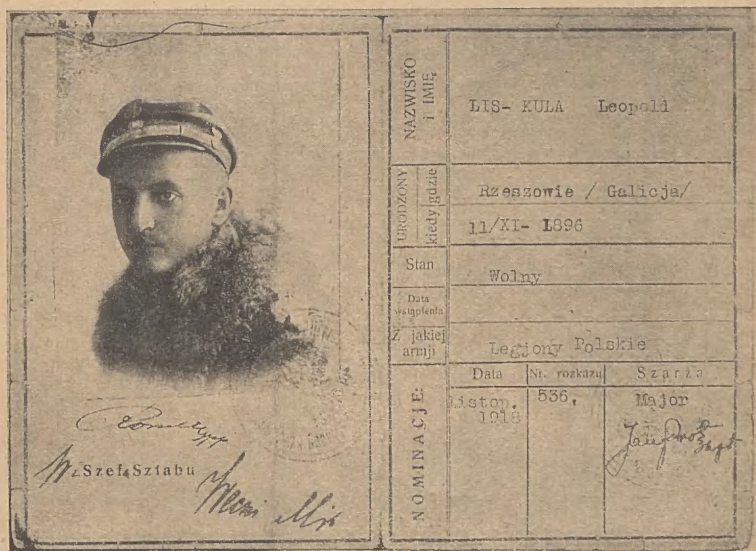 W. Szef Sztabu
NAZWISKO
i IMIĘ
LIS- KULA Leopold
URODZONY
kiedy gdzie
Rzeszowie / Galicja/
11/XI- 1896
Stan
Wolny
Data
wstąpienia
Z jakiej
armji
Legjony Polskie
NOMINACJE:
Data Nr. rozkazu Szarża
Listop. 536, Major
1918